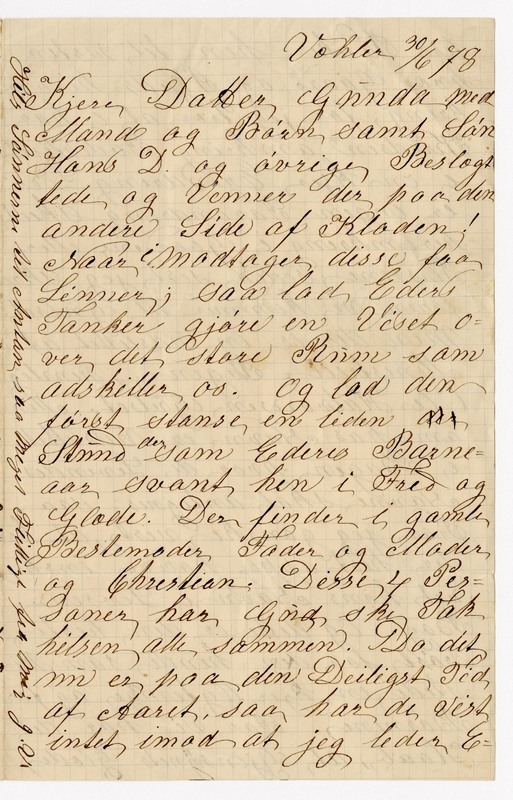 Vøhler 30/6 78
Kjere Datter Gunda med
Mand og Børn samt Søn
Hans D. og övrige Beslægt
tede og Venner der paa den
andere Side af Kloden!
Naar i modtager disse faa
Linner; saa lad Eders
Tanker gjöre en Viset o=
ver det store Rum som
adskiller os. Og lad den
först stanse en liden
Stund der som Ederes Barne=
aar svant hen i Fred og
Glæde. Der finder i gamle
Bestemoder Fader og Moder
og Christian. Disse 4 Per=
soner har Gud ske Tak
hilsen alle sammen. Da det
nu er paa den Deiligst Tid
af Aaret, saa har de vist
intet imod at jeg leder E=
saa meget fra mig